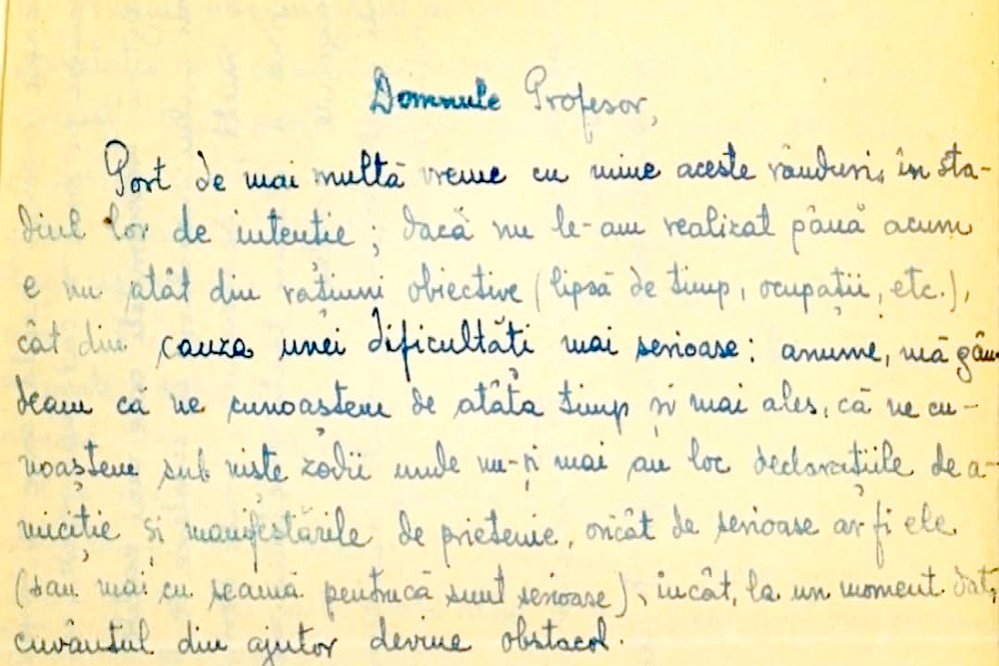 Domnule Profesor,
Port de mai multă vreme cu mine aceste rânduri, în sta-
diul lor de intenție; dacă nu le-am realizat până acum
e nu atât din rațiuni obiective (lipsă de timp, ocupații, etc.),
cât din cauza unei dificultăți mai serioase: anume, mă gân-
deam că ne cunoaștem de atâta timp și mai ales, că ne cu-
noaștem sub niște zodii unde nu-și mai au loc declarațiile de a-
miciție și manifestările de prietenie, oricât de serioase ar fi ele
(sau mai cu seamă pentrucă sunt serioase), încât, la un moment dat,
cuvântul din ajutor devine obstacol.